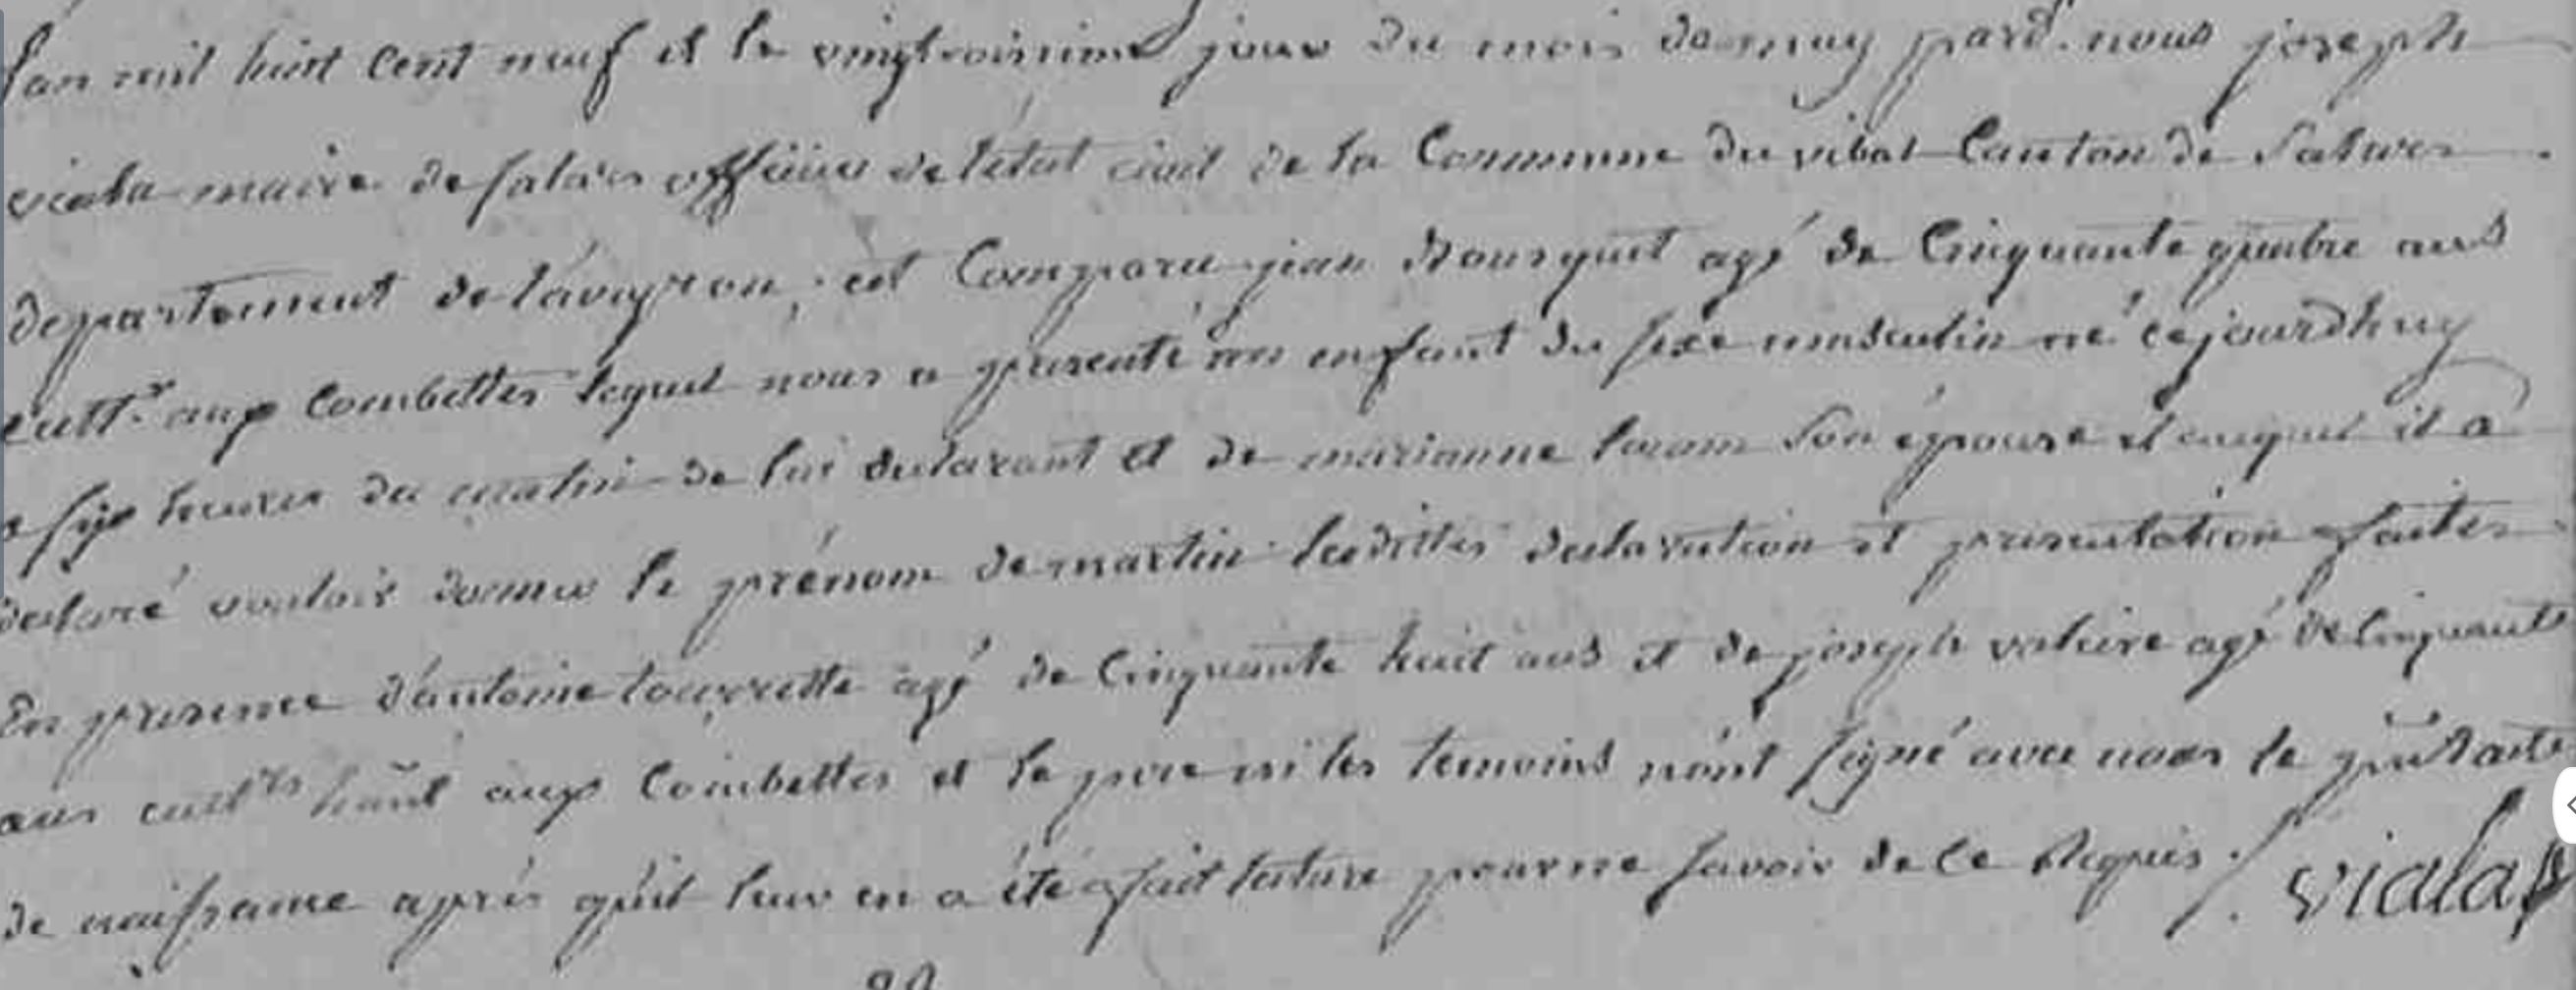 l'an mil huit cent neuf et le vingt troisieme jour du mois de may pard. nous joseph
viala maire de salars officier de létat civil de la Commune du vibal Canton de Salars
departement de láveyron, est Comparu jean Bousquet agé de Cinquante quatre ans
cultr. aux Combettes lequel nous a presenté un enfant du sexe masculin né cejourdhuy
a six heures du matin de lui declarant et de marianne son épouse et auquel il a
declaré vouloir donner le prénom de martin lesdittes declaration et presentation faites
En presence d'antoine tourrette agé de Cinquante huit ans et de joseph valiere agé de Cinquante
ans cultrs hānt aux Combettes et le pere ni les temoins nónt signé avec nous le pn̄t acte
de naissance aprés qu'il leur en a été fait lecture pour ne savoir de ce Requis ./. viala